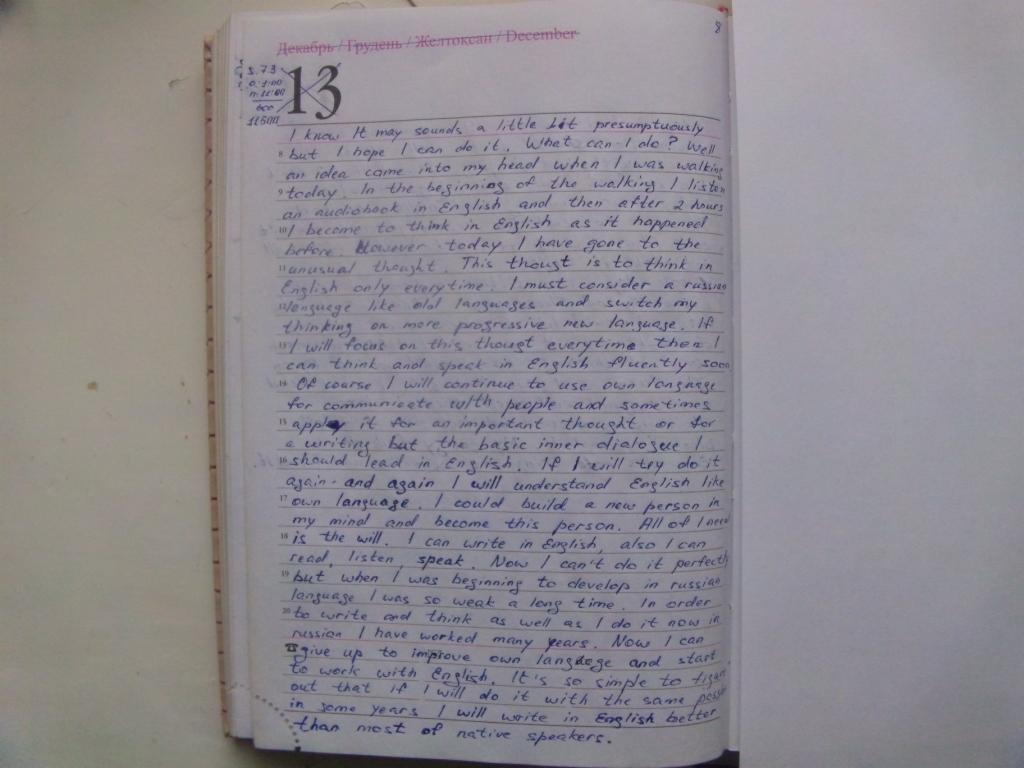 8
Декабрь / Грудень / Желтоксан / December
13
11500
I know It may sounds a little bit presumptuously
8 but I hope I can do it. What can I do? Well
an idea came into my head when I was walking
9 today. In the beginning of the walking I listen
an audiobook in English and then after 2 hours
10 I become to think in English as it happened
before. However today I have gone to the
11 unusual thought. This thougt is to think in
English only everytime. I must consider a russian
12 language like old languages and switch my
thinking on more progressive new language. If
13 I will focus on this thougt everytime then I
can think and speak in English fluently soon
14 Of course I will continue to use own language
for communicate with people and sometimes
15 apply it for an important thought or for
a writing but the basic inner dialogue I
16 should lead in English. If I will try do it
again and again I will understand English like
17 own language. I could build a new person in
my mind and become this person. All of I need
18 is the will. I can write in English, also I can
read, listen, speak. Now I can't do it perfectly
19 but when I was beginning to develop in russian
language I was so weak a long time. In order
20 to write and think as well as I do it now in
russian I have worked many years. Now I can
give up to improve own language and start
to work with English. It's so simple to figure
out that if I will do it with the same
in some years I will write in English better
than most of native speakers.